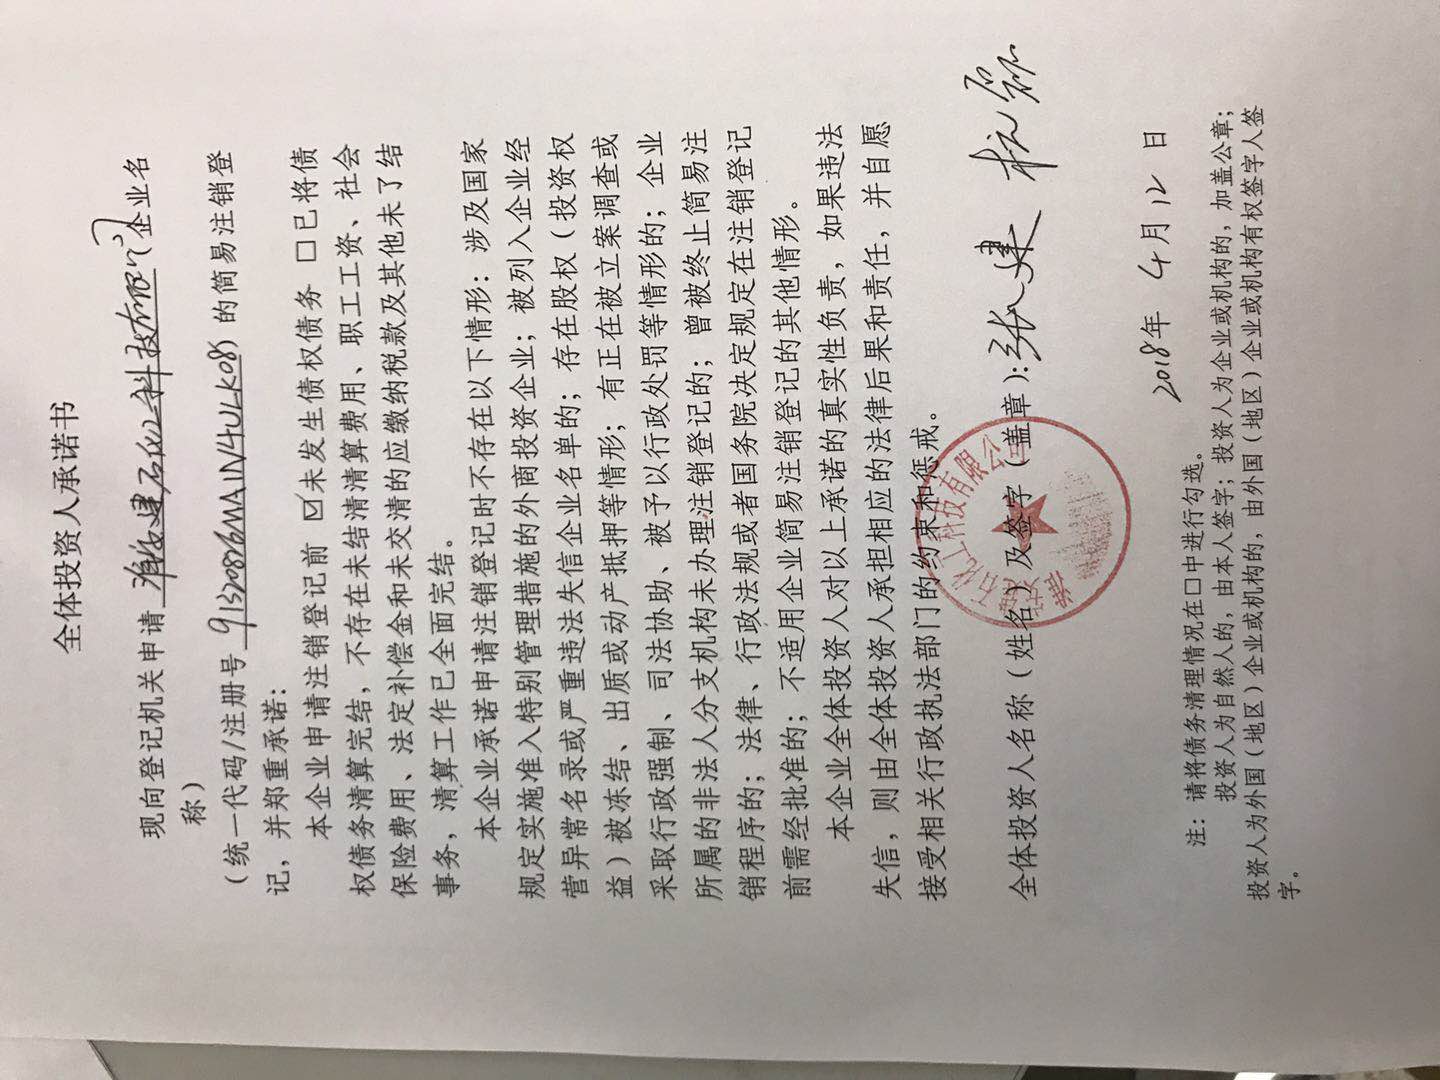 全体投资人承诺书
现向登记机关申请 淮安建石化工科技有限公司(企业名
称)
(统一代码/注册号 91320826MA1N4ULK08) 的简易注销登
记，并郑重承诺：
本企业申请注销登记前 ☑未发生债权债务 □已将债
权债务清算完结，不存在未结清清算费用、职工工资、社会
保险费用、法定补偿金和未交清的应缴纳税款及其他未了结
事务，清算工作已全面完结。
本企业承诺申请注销登记时不存在以下情形：涉及国家
规定实施准入特别管理措施的外商投资企业；被列入企业经
营异常名录或严重违法失信企业名单的；存在股权（投资权
益）被冻结、出质或动产抵押等情形；有正在被立案调查或
采取行政强制、司法协助、被予以行政处罚等情形的；企业
所属的非法人分支机构未办理注销登记的；曾被终止简易注
销程序的；法律、行政法规或者国务院决定规定在注销登记
前需经批准的；不适用企业简易注销登记的其他情形。
本企业全体投资人对以上承诺的真实性负责，如果违法
失信，则由全体投资人承担相应的法律后果和责任，并自愿
接受相关行政执法部门的约束和惩戒。
全体投资人名称（姓名）及签字（盖章）：张建
石化工科技有限公司
2018年 4月12日
注：请将债务清理情况在□中进行勾选。
投资人为自然人的，由本人签字；投资人为企业或机构的，加盖公章；
投资人为外国(地区)企业或机构的，由外国(地区)企业或机构有权签字人签
字。